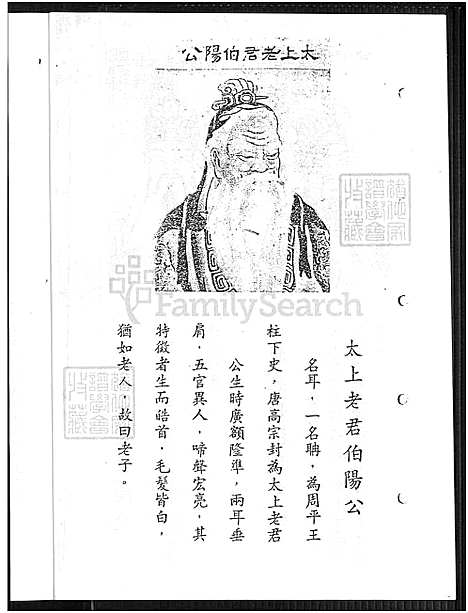 太上老君伯陽公
太上老君伯陽公
名耳，一名聃，為周平王
柱下史，唐高宗封為太上老君
公生時廣額隆準，兩耳垂
肩，五官異人，啼聲宏亮，其
特徵者生而皓首，毛髮皆白，
猶如老人，故曰老子。
FamilySearch